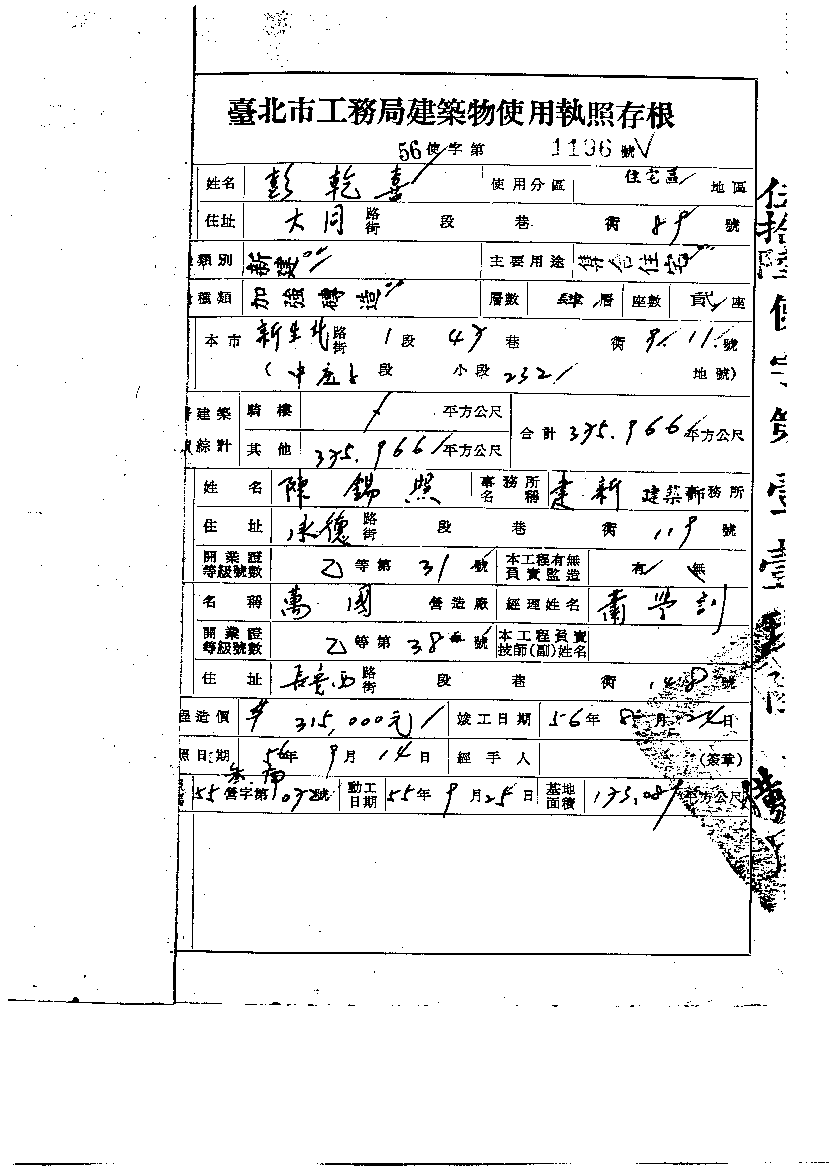 臺北市工務局建築物使用執照存根
56使字第 1196 號
姓名 彭乾喜 使用分區 住宅區 地區
住址 大同 路街 段 巷 街 89 號
類別 新建 主要用途 住宅
種類 加強磚造 層數 肆層 座數 貳座
本市 新生北 路街 1段 47巷 街 9.11.號
( 段 小段 232 地號)
建築 騎樓 / 平方公尺 合計 375.966 平方公尺
綜計 其他 375.966 平方公尺
姓名 陳錫照 事務所名稱 建新 建築師事務所
住址 承德 路街 段 巷 街 119 號
開業證等級號數 乙等第 31 號 本工程有無負責監造 有 無
名稱 萬國 營造廠 經理姓名 蕭學
開業證等級號數 乙等第 38 號 本工程負責技師(副)姓名
住址 長安西 路街 段 巷 街 148 號
造價 315,000元 竣工日期 56年8月24日
照日期 56年9月14日 經手人 (簽章)
55營字第 號 動工日期 55年9月25日 基地面積 173.089 平方公尺
伍拾陸使字第壹壹